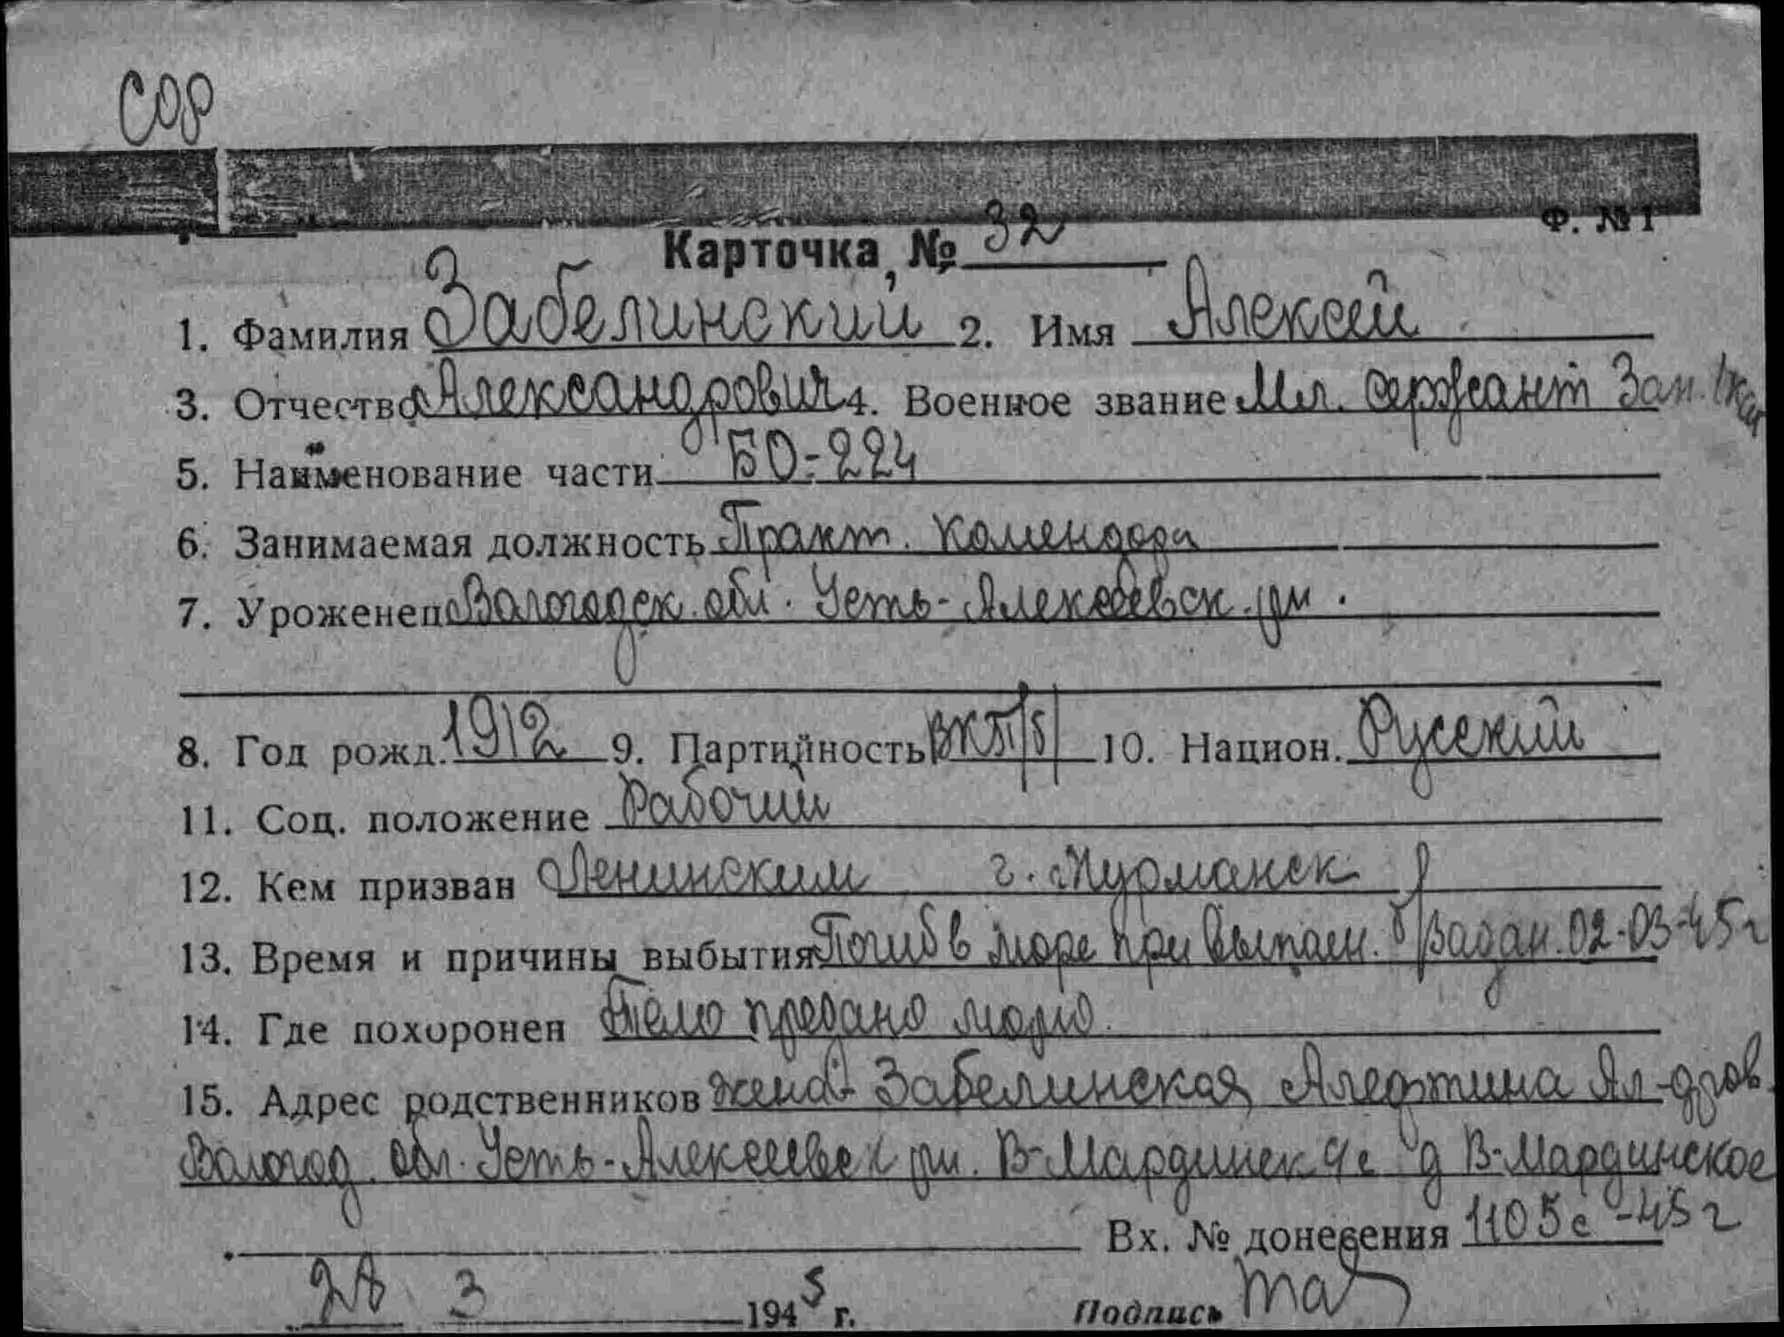 Ф. № 1
Карточка № 32
1. Фамилия Забелинский 2. Имя Алексей
3. Отчество Александрович 4. Военное звание Мл. сержант Зап.
5. Наименование части БО-224
6. Занимаемая должность Практ. комендора
7. Уроженец Вологодск. обл. Усть-Алексеевск. рн.
8. Год рожд. 1912 9. Партийность ВКП/б/ 10. Национ. Русский
11. Соц. положение Рабочий
12. Кем призван Ленинским г. Мурманск
13. Время и причины выбытия Погиб в море при выполн. б/задан. 02-03-45г
14. Где похоронен Тело предано морю
15. Адрес родственников жена - Забелинская Алефтина Ал-дров.
Вологод. обл. Усть-Алексеевск рн. В-Мардинск с/с д В-Мардинское
Вх. № донесения 1105с -45г
28 3 1945 г. Подпись